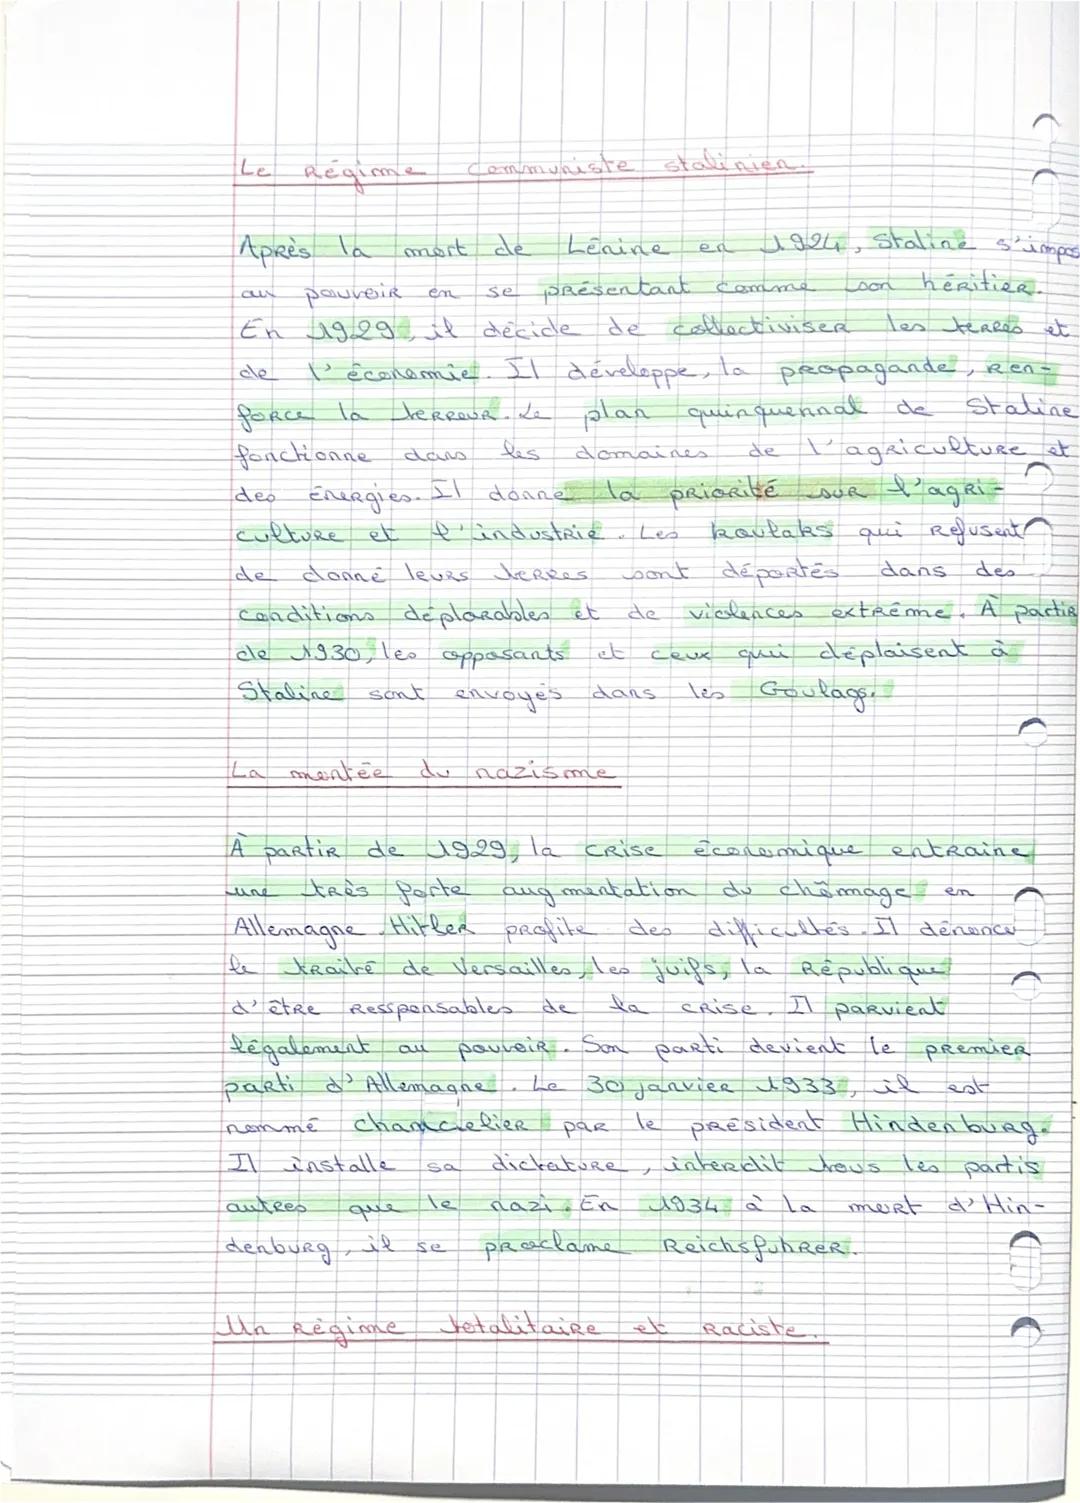 Le Régime communiste stalinien.
Après la mort de Lénine en 1924, Staline s'impos
au pouvoir en se présentant comme son héritier.
En 1929, il décide de collectiviser les terres et
de l'économie. Il développe, la propagande, ren-
force la terreur. Le plan quinquennal de Staline
fonctionne dans les domaines de l'agriculture et
des énergies. Il donne la priorité sur l'agri-
culture et l'industrie. Les koulaks qui refusent
de donné leurs terres sont déportés dans des
conditions déplorables et de violences extrême. À partir
de 1930, les opposants et ceux qui déplaisent à
Staline sont envoyés dans les Goulags.
La montée du nazisme
À partir de 1929, la crise économique entraine
une très forte augmentation du chômage en
Allemagne. Hitler profite des difficultés. Il dénonce
le traité de Versailles, les juifs, la République
d'être Ressponsables de la crise. Il parvient
légalement au pouvoir. Son parti devient le premier
parti d'Allemagne. Le 30 janvier 1933, il est
nommé chancelier par le président Hindenburg.
Il installe sa dictature, interdit tous les partis
autres que le nazi. En 1934 à la mort d'Hin-
denburg, il se proclame Reichsfuhrer.
Un Régime totalitaire et raciste.